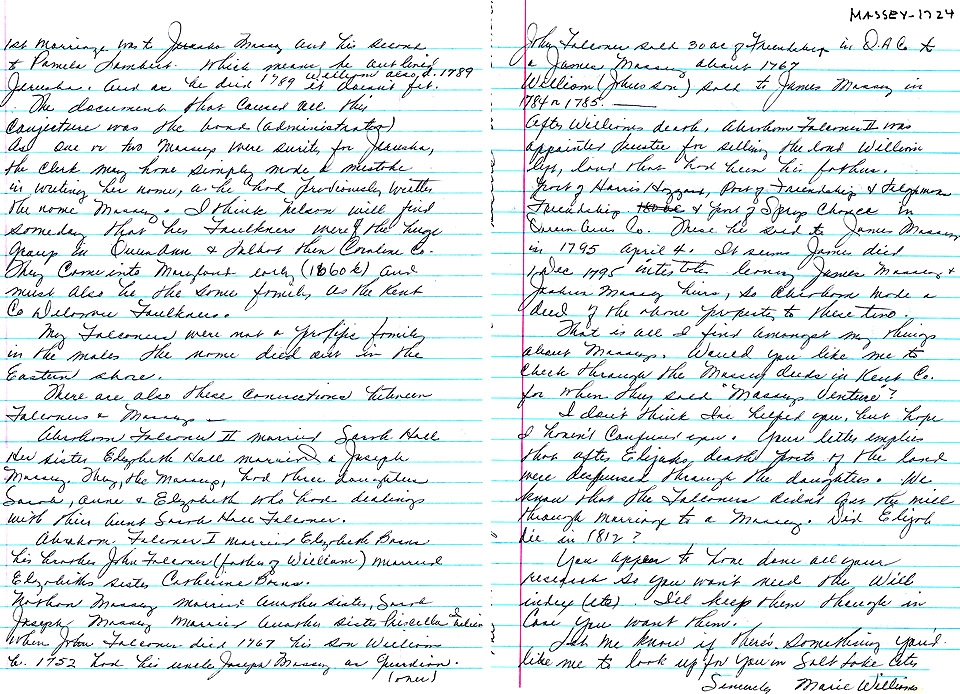 MASSEY-1724
1st marriage was to Jerusha Massey and his second
to Pamela Lambert. Which means he outlived
Jerusha. And as he died 1789 William also d. 1789 it doesn't fit.
The document that caused all this
conjecture was the bond (administrator)
As one or two Masseys were surity for Jerusha,
the clerk may have simply made a mistake
in writing her name, as he had previously written
the name Massey. I think Nelson will find
someday that his Faulkners were of the large
group in Queen Ann & Talbot then Caroline Co.
They came into Maryland early (1660's) and
must also be the same family as the Kent
Co Faulkners.
My Falconers were not a prolific family
in the males the name died out in the
Eastern shore.
There are also these connections between
Falconers & Masseys —
Abraham Falconer II married Sarah Hall
Her sister Elizabeth Hall married a Joseph
Massey. They, the Masseys, had three daughters
Sarah, Anne & Elizabeth who had dealings
with their Aunt Sarah Hall Falconer.
Abraham Falconer I married Elizabeth Burns
his brother John Falconer (father of William) married
Elizabeths sister Catherine Burns.
Nathan Massey married another sister, Sarah
Joseph Massey married another sister Priscilla
When John Falconer died 1767 his son William
b. 1752 had his uncle Joseph Massey as guardian.
(over)
John Falconer sold 30 ac of Friendship in Q.A Co to
a James Massey about 1767
William (Johns son) sold to James Massey in
1784 or 1785. —
After Williams death, Abraham Falconer II was
appointed trustee for selling the land William
left, land that had been his fathers.
part of Harris Hazard, Part of Friendship & Tilghman
Friendship & part of Sprup Choyce in
Queen Anns Co. These he sold to James Massey
in 1795 April 4. It seems James died
1, Dec 1795 intestate leaving James Massey &
Joshua Massey heirs, so Abraham made a
deed of the above property to these two.
That is all I find amongst my things
about Masseys. Would you like me to
check through the Massey deeds in Kent Co.
for when they sold "Masseys Venture"?
I don't think I've helped you, but hope
I haven't confused you. Your letter implies
that after Elijahs death parts of the land
were dispursed through the daughters. We
know that the Falconers didn't get the mill
through marriage to a Massey. Did Elijah
die in 1812?
You appear to have done all your
research so you won't need the Will
index (etc). I'll keep them though in
case you want them.
Let me know if there's something you'd
like me to look up for you in Salt Lake City
Sincerely Marie Williams